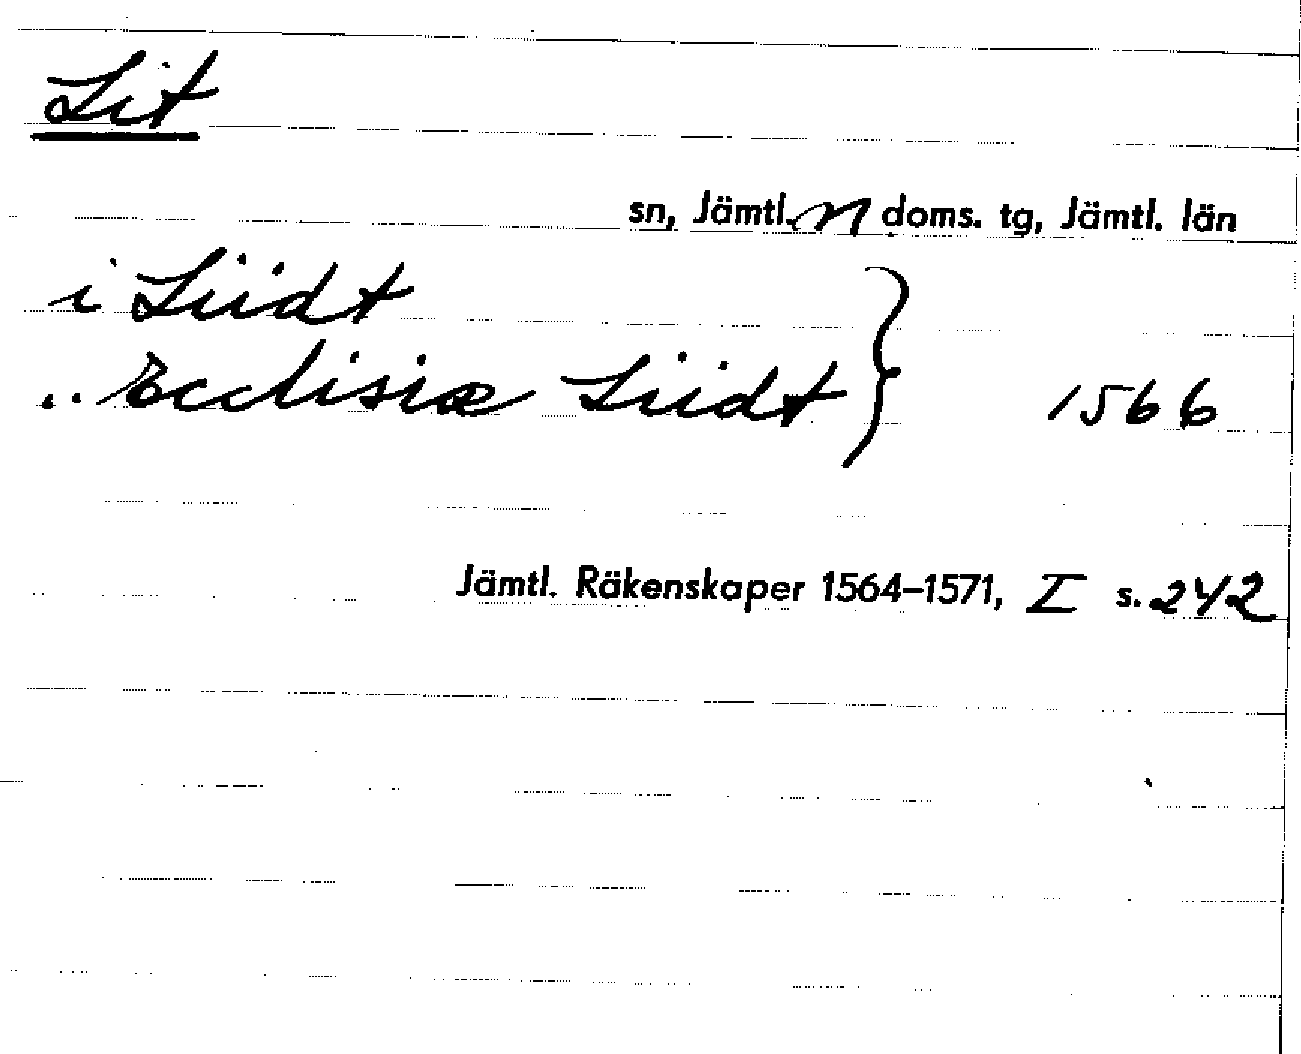 Lit
sn, Jämtl. n doms. tg, Jämtl. län
i Liidt
.. Ecclisiæ Liidt } 1566
Jämtl. Räkenskaper 1564–1571, I s. 242